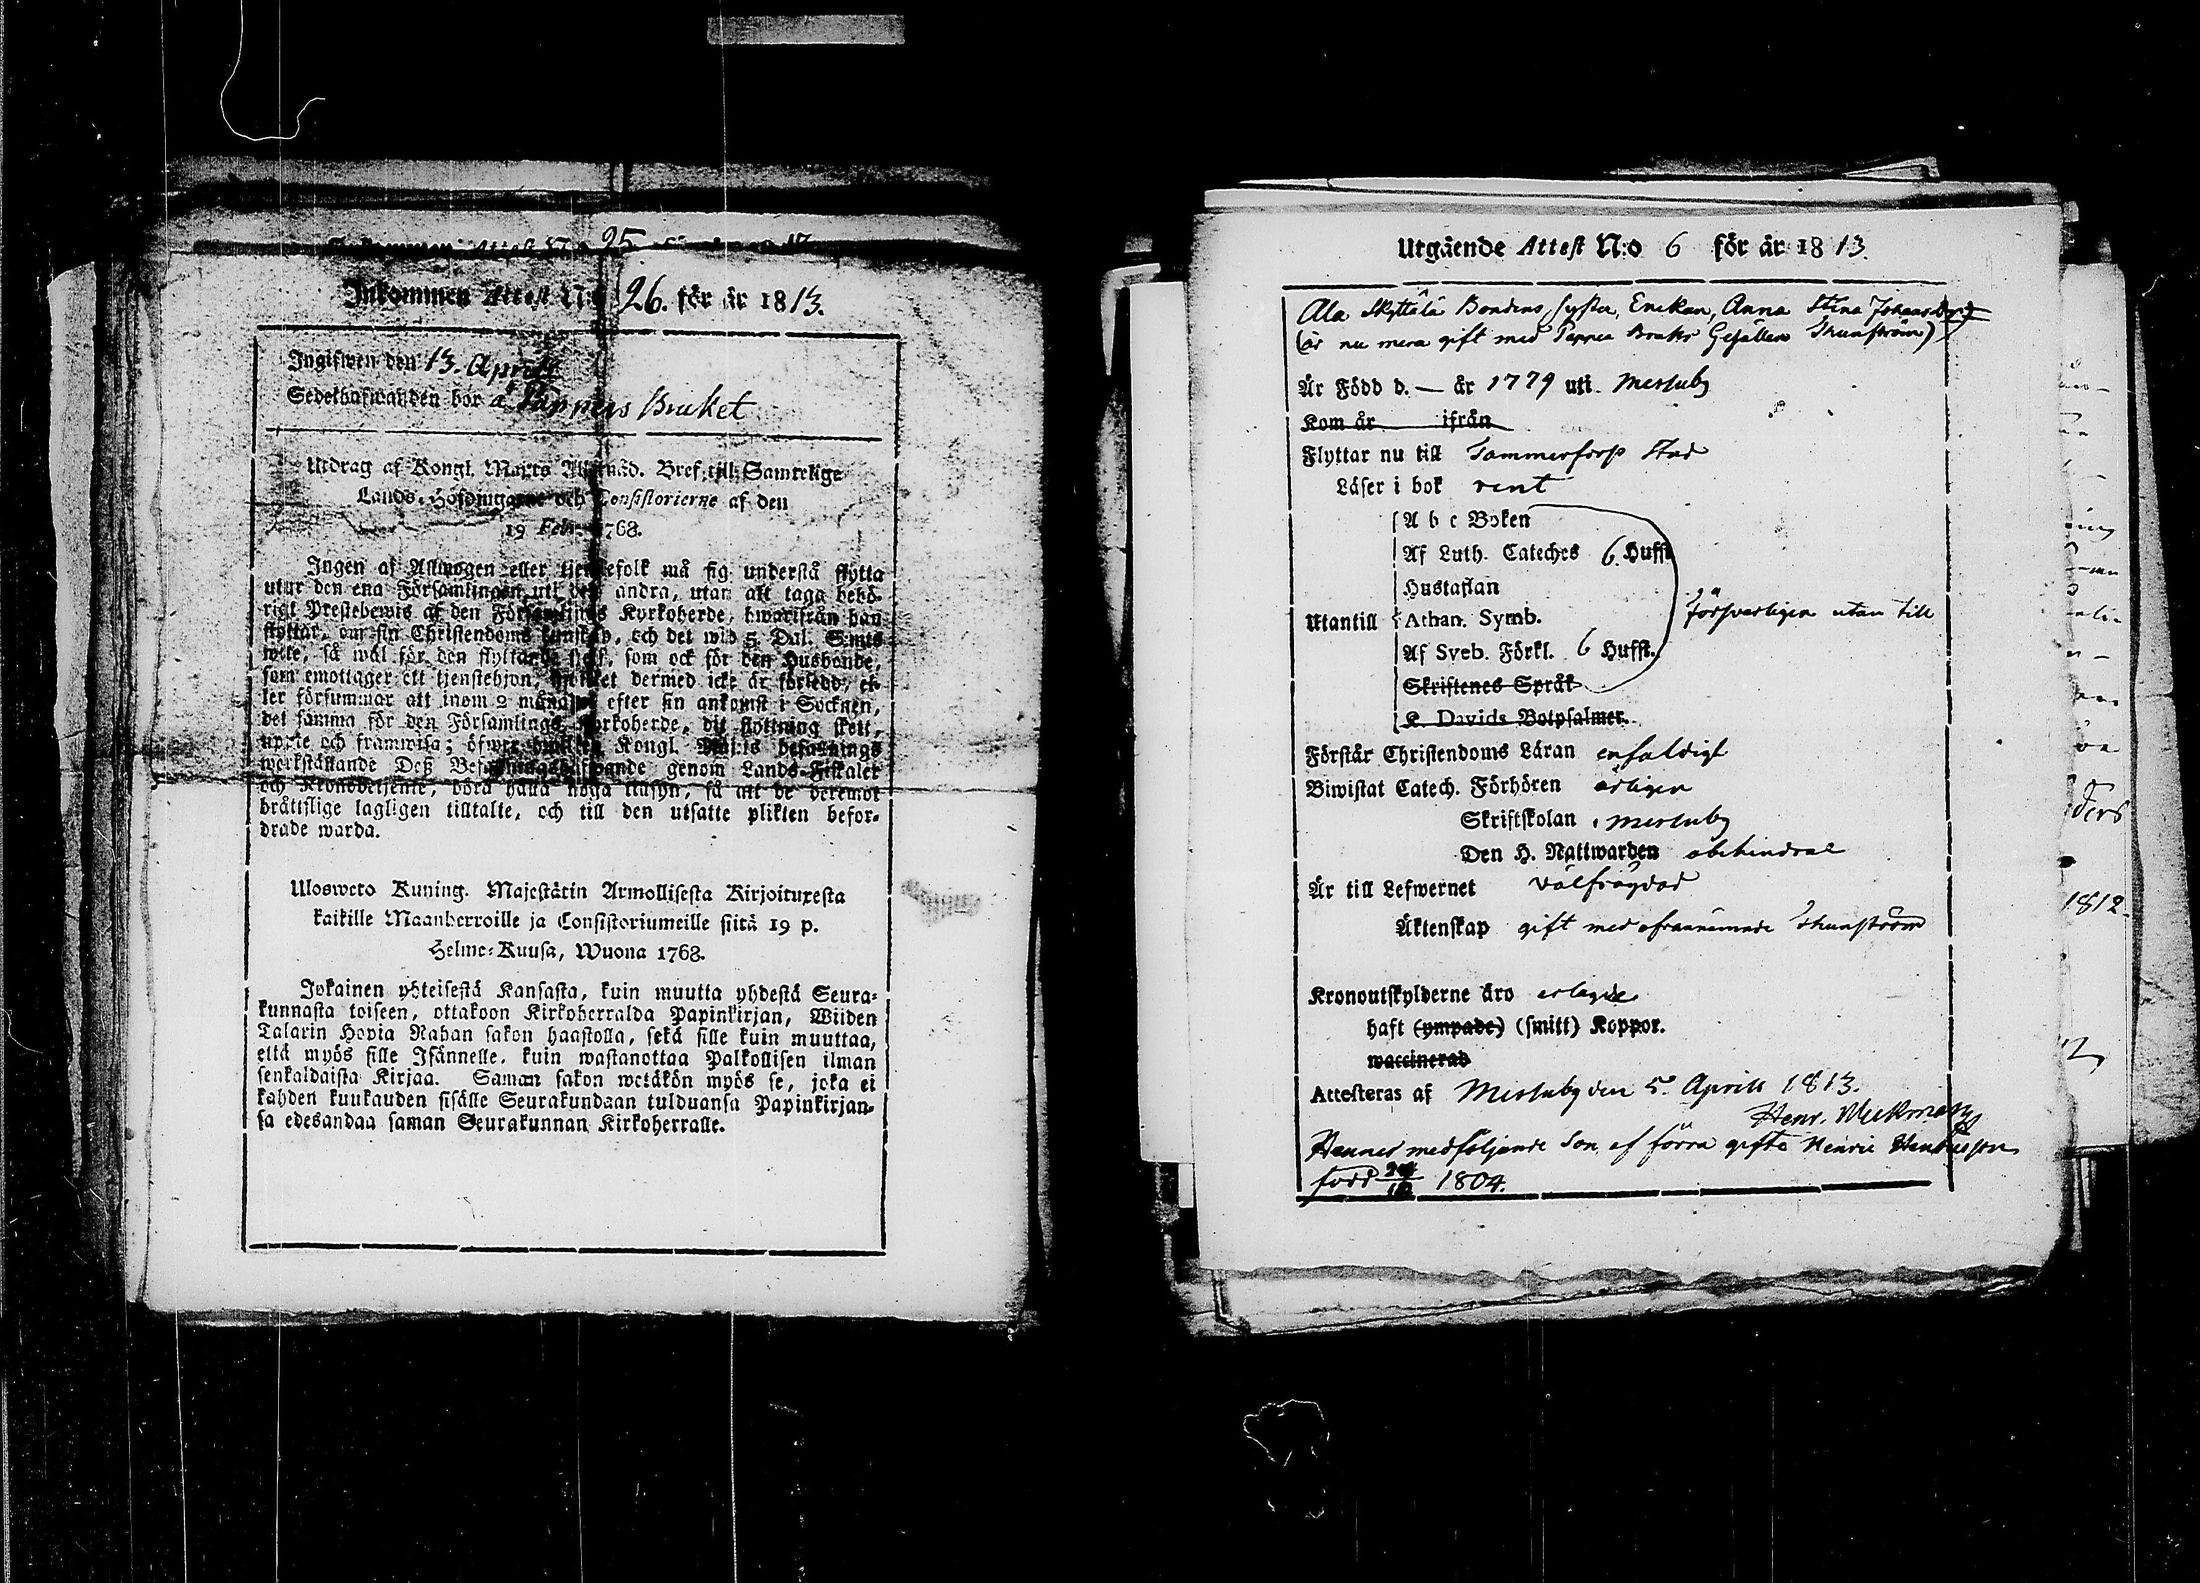 25
Inkommen Attest N:o 26. för år 1813.
Ingifwen den 13. April
Sedelhafwanden bor å Pappers Bruket
Utdrag af Kongl. Maj:ts Allernåd. Bref till Samtelige
Lands-Höfdingarne och Consistorierne af den
19 Febr. 1768.
Ingen af Allmogen eller tjenstefolk må sig understå flytta
utur den ena Församlingen uti den andra, utan att taga behö-
rigt Prestebewis af den Församlings Kyrkoherde, hwarifrån han
flyttar, om sin Christendoms kunskap, och det wid 5. Dal. S:mts
wite, så wäl för den flyttande sjelf, som ock för den Husbonde,
som emottager ett tjenstehjon, hwilket dermed icke är försedd, el-
ler försummar att inom 2 månader efter sin ankomst i Socknen,
det samma för den Församlings Kyrkoherde, dit flyttning skett,
uppte och framwisa; öfwer hwilken Kongl. Maj:ts befallnings
werkställande Deß Befallningshafwande genom Lands-Fiskaler
och Kronobetjente, böra hålla noga tillsyn, så att de deremot
bråttslige lagligen tilltalte, och till den utsatte plikten befor-
drade warda.
Ulosweto Kuning. Majestätin Armollisesta Kirjoituxesta
kaikille Maanherroille ja Consistoriumeille siitä 19 p.
Helme-Kuusa, Wuona 1768.
Jokainen yhteisestä Kansasta, kuin muutta yhdestä Seura-
kunnasta toiseen, ottakoon Kirkoherralda Papinkirjan, Wiiden
Talarin Hopia Rahan sakon haastolla, sekä sille kuin muuttaa,
että myös sille Isännelle, kuin wastanottaa Palkollisen ilman
senkaldaista Kirjaa. Saman sakon wetäkön myös se, joka ei
kahden kuukauden sisälle Seurakundaan tulduansa Papinkirjan-
sa edesandaa saman Seurakunnan Kirkoherralle.
Utgående Attest N:o 6 för år 1813.
Ala Skyttälä Bondens Syster, Enckan, Anna Stina Johansdotr
(är nu mera gift med Pappers Bruks Gesällen Thunström)
Är Född d. — år 1779 uti Messuby
Kom år ifrån
Flyttar nu till Tammerfors Stad
Läser i bok rent
A b c Boken
Af Luth. Cateches 6. Hufst.
Hustaflan
Utantill Athan. Symb. försvarligen utan till
Af Sveb. Förkl. 6 Hufst.
Skriftenes Språk
K. Davids Botpsalmer.
Förstår Christendoms Läran enfaldigt
Biwistat Catech. Förhören årligen
Skriftskolan i Messuby
Den H. Nattwarden obehindrat
Är till Lefwernet välfrägdad
Äktenskap gift med ofvannämnde Thunström
Kronoutskylderne äro erlagde
haft (ympade) (smitt) Koppor.
waccinerad
Attesteras af Messuby den 5. Aprill 1813.
Henr.
Hennes medföljande Son af förra giftet Henric Henricsson
född 1804.
1812.